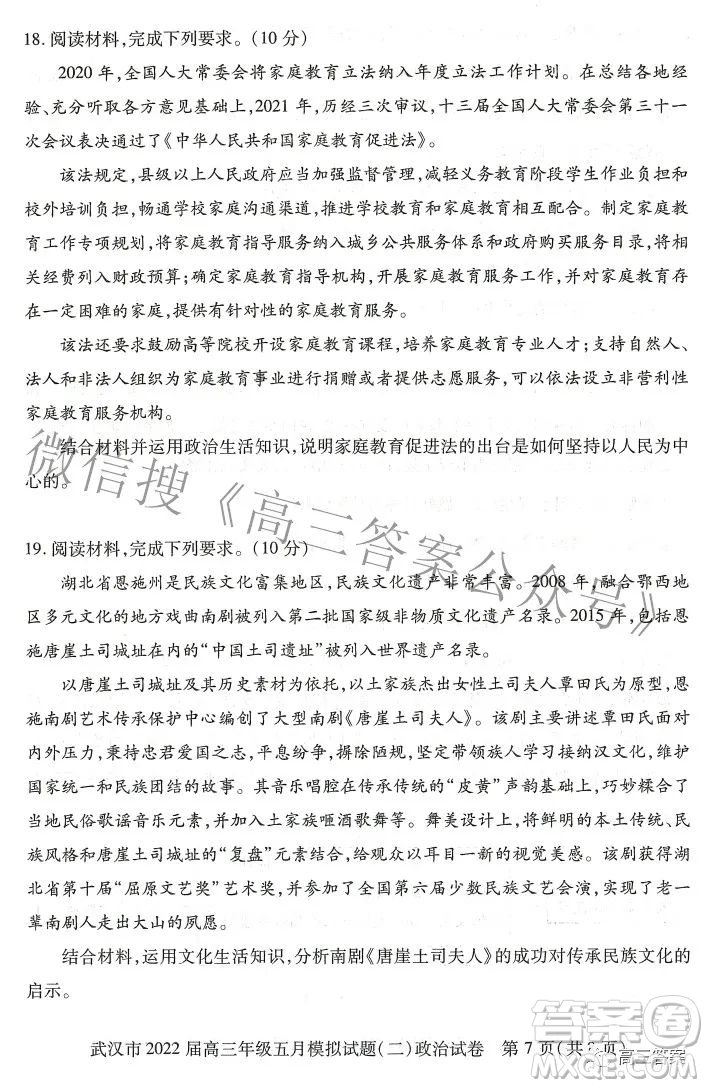 18. 阅读材料,完成下列要求。(10 分)
2020 年,全国人大常委会将家庭教育立法纳入年度立法工作计划。在总结各地经
验、充分听取各方意见基础上,2021 年,历经三次审议,十三届全国人大常委会第三十一
次会议表决通过了《中华人民共和国家庭教育促进法》。
该法规定,县级以上人民政府应当加强监督管理,减轻义务教育阶段学生作业负担和
校外培训负担,畅通学校家庭沟通渠道,推进学校教育和家庭教育相互配合。制定家庭教
育工作专项规划,将家庭教育指导服务纳入城乡公共服务体系和政府购买服务目录,将相
关经费列入财政预算;确定家庭教育指导机构,开展家庭教育服务工作,并对家庭教育存
在一定困难的家庭,提供有针对性的家庭教育服务。
该法还要求鼓励高等院校开设家庭教育课程,培养家庭教育专业人才;支持自然人、
法人和非法人组织为家庭教育事业进行捐赠或者提供志愿服务,可以依法设立非营利性
家庭教育服务机构。
结合材料并运用政治生活知识,说明家庭教育促进法的出台是如何坚持以人民为中
心的。
微信搜《高三答案公众号》
19. 阅读材料,完成下列要求。(10 分)
湖北省恩施州是民族文化富集地区,民族文化遗产非常丰富。2008 年,融合鄂西地
区多元文化的地方戏曲南剧被列入第二批国家级非物质文化遗产名录。2015 年,包括恩
施唐崖土司城址在内的“中国土司遗址”被列入世界遗产名录。
以唐崖土司城址及其历史素材为依托,以土家族杰出女性土司夫人覃田氏为原型,恩
施南剧艺术传承保护中心编创了大型南剧《唐崖土司夫人》。该剧主要讲述覃田氏面对
内外压力,秉持忠君爱国之志,平息纷争,摒除陋规,坚定带领族人学习接纳汉文化,维护
国家统一和民族团结的故事。其音乐唱腔在传承传统的“皮黄”声韵基础上,巧妙糅合了
当地民歌谣音乐元素,并加入土家族咂酒歌舞等。舞美设计上,将鲜明的本土传统、民
族风格和唐崖土司城址的“复盘”元素结合,给观众以耳目一新的视觉美感。该剧获得湖
北省第十届“屈原文艺奖”艺术奖,并参加了全国第六届少数民族文艺会演,实现了老一
辈南剧人走出大山的夙愿。
结合材料,运用文化生活知识,分析南剧《唐崖土司夫人》的成功对传承民族文化的
启示。
武汉市 2022 届高三年级五月模拟试题(二)政治试卷 第 7 页(共 8 页)
高三答案
答案圈
MXQE.COM